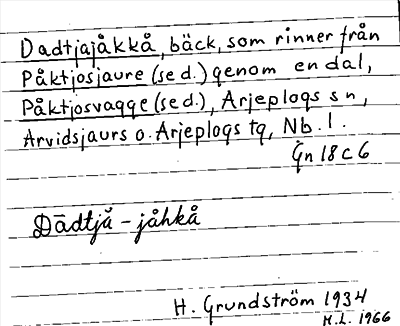 Dadtjajåkkå, bäck, som rinner från
Påktjosjaure (se d.) genom en dal,
Påktjosvagge (se d.), Arjeplogs sn,
Arvidsjaurs o. Arjeplogs tg, Nb. l.
Gn 18 c 6
Dādtjā̆ - jåhkå
H. Grundström 1934
H.L. 1966